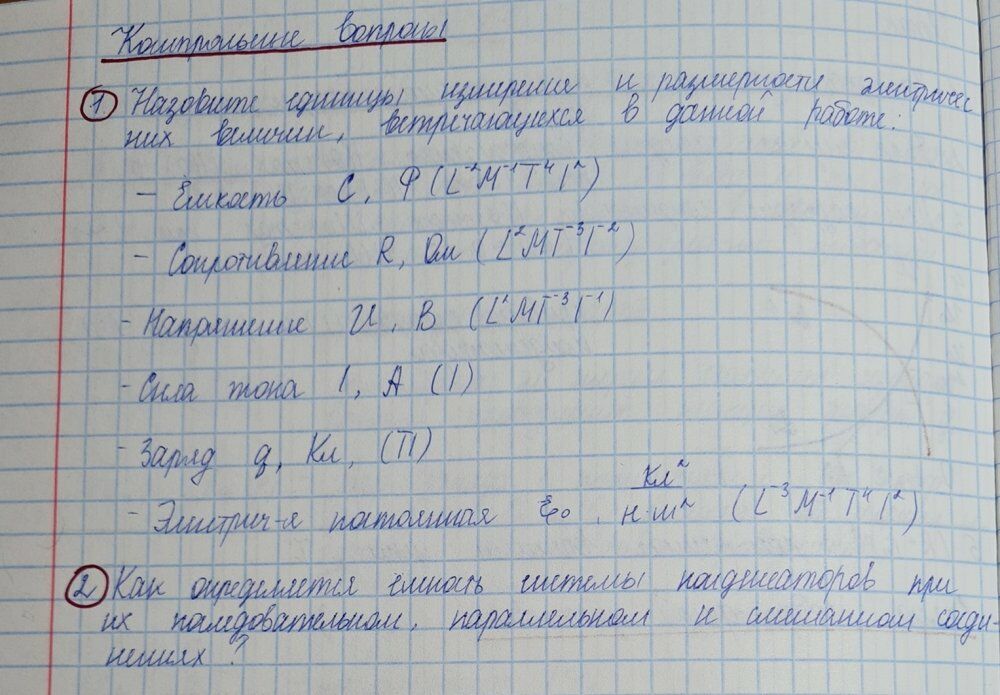 Контрольные вопросы
1 Назовите единицы измерения и размерности электричес
ких величин, встречающихся в данной работе:
- Ёмкость C, Ф (L⁻²M⁻¹T⁴I²)
- Сопротивление R, Ом (L²MT⁻³I⁻²)
- Напряжение U, В (L²MT⁻³I⁻¹)
- Сила тока I, А (I)
- Заряд q, Кл, (TI)
- Электрич-я постоянная ε₀, Кл²/Н·м² (L⁻³M⁻¹T⁴I²)
2 Как определяется емкость системы конденсаторов при
их последовательном, параллельном и смешанном соеди-
нениях?